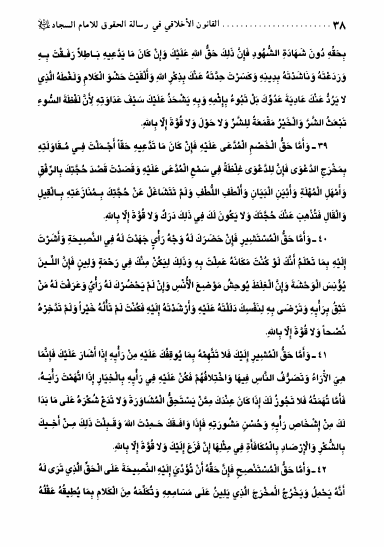 ٣٨ ........................ القانون الأخلاقي في رسالة الحقوق للامام السجاد
بِحَقِّهِ دُونَ شَهَادَةِ الشُّهُودِ فَإِنَّ ذَلِكَ حَقُّ اللهِ عَلَيْكَ وَإِنْ كَانَ مَا يَدَّعِيهِ بَاطِلاً رَفَقْتَ بِهِ
وَرَدَعْتَهُ وَنَاشَدْتَهُ بِدِينِهِ وَكَسَرْتَ حِدَّتَهُ عَنْكَ بِذِكْرِ اللهِ وَأَلْقَيْتَ حَشْوَ الْكَلَامِ وَلَغْطَهُ الَّذِي
لَا يَرُدُّ عَنْكَ عَادِيَةَ عَدُوِّكَ بَلْ تَبُوءُ بِإِثْمِهِ وَبِهِ يَشْحَذُ عَلَيْكَ سَيْفَ عَدَاوَتِهِ لِأَنَّ لَفْظَةَ السُّوءِ
تَبْعَثُ الشَّرَّ وَالْخَيْرُ مَقْمَعَةٌ لِلشَّرِّ وَلَا حَوْلَ وَلَا قُوَّةَ إِلَّا بِاللهِ.
٣٩ ـ وَأَمَّا حَقُّ الْخَصْمِ الْمُدَّعَى عَلَيْهِ فَإِنْ كَانَ مَا تَدَّعِيهِ حَقّاً أَجْمَلْتَ فِي مُقَاوَلَتِهِ
بِمَخْرَجِ الدَّعْوَى فَإِنَّ لِلدَّعْوَى غِلْظَةً فِي سَمْعِ الْمُدَّعَى عَلَيْهِ وَقَصَدْتَ قَصْدَ حُجَّتِكَ بِالرِّفْقِ
وَأَمْهَلِ الْمُهْلَةِ وَأَبْيَنِ الْبَيَانِ وَأَلْطَفِ اللُّطْفِ وَلَمْ تَتَشَاغَلْ عَنْ حُجَّتِكَ بِمُنَازَعَتِهِ بِالْقِيلِ
وَالْقَالِ فَتَذْهَبَ عَنْكَ حُجَّتُكَ وَلَا يَكُونَ لَكَ فِي ذَلِكَ دَرَكٌ وَلَا قُوَّةَ إِلَّا بِاللهِ.
٤٠ ـ وَأَمَّا حَقُّ الْمُسْتَشِيرِ فَإِنْ حَضَرَكَ لَهُ وَجْهُ رَأْيٍ جَهَدْتَ لَهُ فِي النَّصِيحَةِ وَأَشَرْتَ
إِلَيْهِ بِمَا تَعْلَمُ أَنَّكَ لَوْ كُنْتَ مَكَانَهُ عَمِلْتَ بِهِ وَذَلِكَ لِيَكُنْ مِنْكَ فِي رَحْمَةٍ وَلِينٍ فَإِنَّ اللِّينَ
يُؤْنِسُ الْوَحْشَةَ وَإِنَّ الْغِلَظَ يُوحِشُ مَوْضِعَ الْأُنْسِ وَإِنْ لَمْ يَحْضُرْكَ لَهُ رَأْيٌ وَعَرَفْتَ لَهُ مَنْ
تَثِقُ بِرَأْيِهِ وَتَرْضَى بِهِ لِنَفْسِكَ دَلَلْتَهُ عَلَيْهِ وَأَرْشَدْتَهُ إِلَيْهِ فَكُنْتَ لَمْ تَأْلُهُ خَيْراً وَلَمْ تَدَّخِرْهُ
نُصْحاً وَلَا قُوَّةَ إِلَّا بِاللهِ.
٤١ ـ وَأَمَّا حَقُّ الْمُشِيرِ إِلَيْكَ فَلَا تَتَّهِمْهُ بِمَا يُوقِفُكَ عَلَيْهِ مِنْ رَأْيِهِ إِذَا أَشَارَ عَلَيْكَ فَإِنَّمَا
هِيَ الْآرَاءُ وَتَصَرُّفُ النَّاسِ فِيهَا وَاخْتِلَافُهُمْ فَكُنْ عَلَيْهِ فِي رَأْيِهِ بِالْخِيَارِ إِذَا اتَّهَمْتَ رَأْيَهُ،
فَأَمَّا تُهَمَتُهُ فَلَا تَجُوزُ لَكَ إِذَا كَانَ عِنْدَكَ مِمَّنْ يَسْتَحِقُّ الْمُشَاوَرَةَ وَلَا تَدَعْ شُكْرَهُ عَلَى مَا بَدَا
لَكَ مِنْ إِشْخَاصِ رَأْيِهِ وَحُسْنِ مَشُورَتِهِ فَإِذَا وَافَقَكَ حَمِدْتَ اللهَ وَقَبِلْتَ ذَلِكَ مِنْ أَخِيكَ
بِالشُّكْرِ وَالْإِرْصَادِ بِالْمُكَافَأَةِ فِي مِثْلِهَا إِنْ فَزِعَ إِلَيْكَ وَلَا قُوَّةَ إِلَّا بِاللهِ.
٤٢ ـ وَأَمَّا حَقُّ الْمُسْتَنْصِحِ فَإِنَّ حَقَّهُ أَنْ تُؤَدِّيَ إِلَيْهِ النَّصِيحَةَ عَلَى الْحَقِّ الَّذِي تَرَى لَهُ
أَنَّهُ يَحْمِلُ وَيَخْرُجُ الْمَخْرَجَ الَّذِي يَلِينُ عَلَى مَسَامِعِهِ وَتُكَلِّمَهُ مِنَ الْكَلَامِ بِمَا يُطِيقُهُ عَقْلُهُ